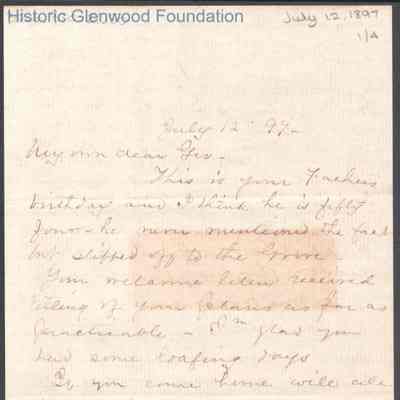 Historic Glenwood Foundation
July 12, 1897
1/4
July 12" 97 -
My own dear
This is your Fathers
birthday and I think he is fifty
four - he never mentioned the fact
but slipped off to the Grove
Your welcome letter received
telling of your plans as far as
practicable - I'm glad you
had some loafing days
If you come home will